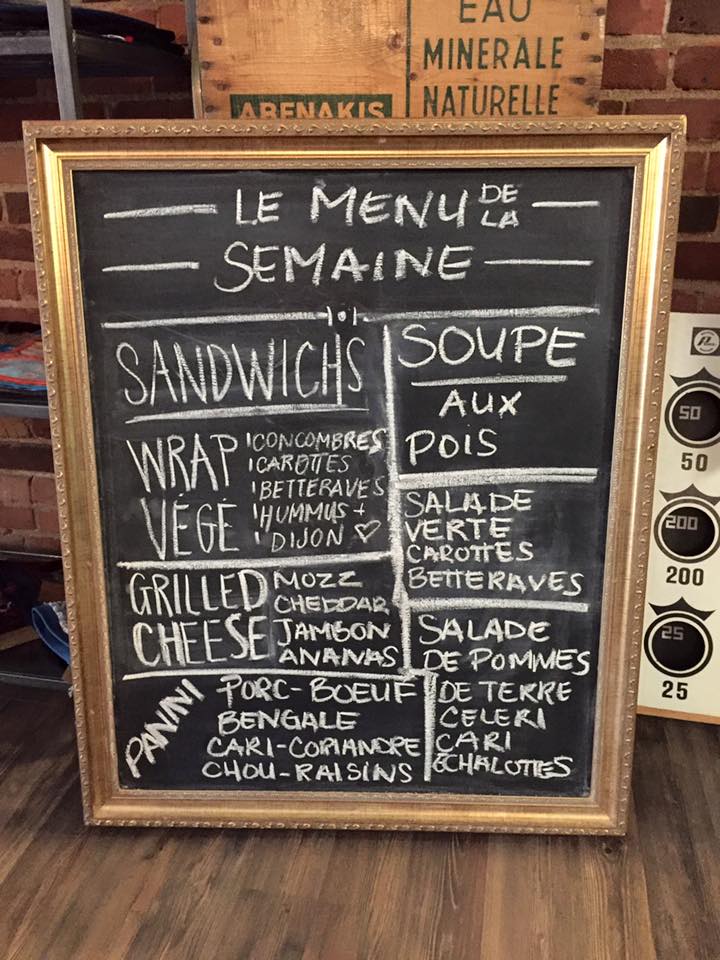 EAU
MINERALE
NATURELLE
ABENAKIS
LE MENU DE LA
SEMAINE
SANDWICHS
WRAP
VÉGÉ
CONCOMBRES
CAROTTES
BETTERAVES
HUMMUS +
DIJON ♡
GRILLED
CHEESE
MOZZ
CHEDDAR
JAMBON
ANANAS
PANINI
PORC-BOEUF
BENGALE
CARI-CORIANDRE
CHOU-RAISINS
SOUPE
AUX
POIS
SALADE
VERTE
CAROTTES
BETTERAVES
SALADE
DE POMMES
DE TERRE
CELERI
CARI
ÉCHALOTTES
50
50
200
200
25
25